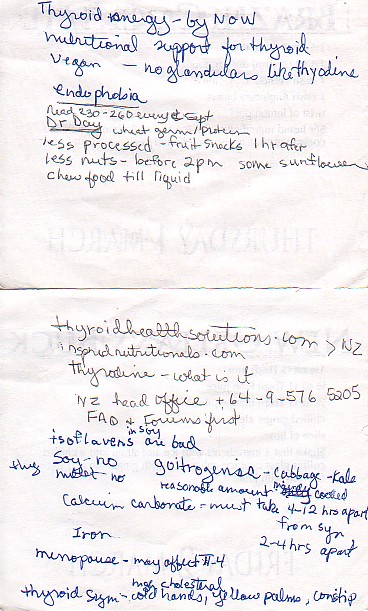 Thyroid energy - by NOW
nutritional support for thyroid
Vegan - no glandulars like thyodine
endophobia
need 230-260 every
Dr Day wheat germ/protein
less processed - fruit snacks 1 hr after
less nuts - before 2pm some sunflower
chew food till liquid
thyroidhealthsolutions.com > NZ
inspirdnutritionals.com
Thyrodine - what is it
NZ head office +64-9-576 5205
FAQ & Forums first
in soy
isoflavens are bad
Soy no goitrogensa - Cabbage - Kale
millet no reasonable amount cooked
Calcium carbonate - must take 4-12 hrs apart
from syn
Iron 2-4 hrs apart
menopause - may affect T-4
high cholesteral
thyroid sym - cold hands, yellow palms, constip
THURSDAY 1 MARCH